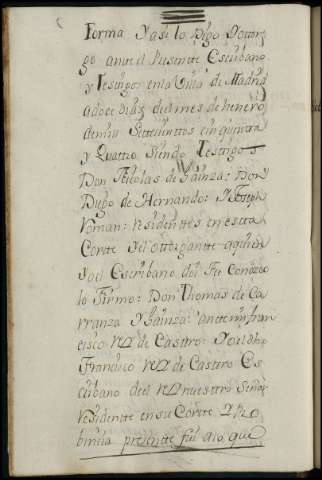 forma Y asi lo Digo Y otorg
go ante el Presente Escribano
y testigos en la Villa de Madrid
a doce dias del mes de henero
de mill Settecientos cinquenta
y Quattro siendo testigos
Don Nicolas de Gainza: Don
Diego de Hernando: Y Joseph
Roman: residenttes en estta
Cortte Yel ottorgantte a quien
Yo el Escribano doi fee Conozco
lo firmo: Don Thomas de Ca
rranza Y Gainza: antte mi fran
cisco rz de Casttro: Yo el dho
Francisco rz de Casttro Es
cribano del rey nuesttro Señor
residentte en su Cortte Y Pro
bincia presentte fui a lo que